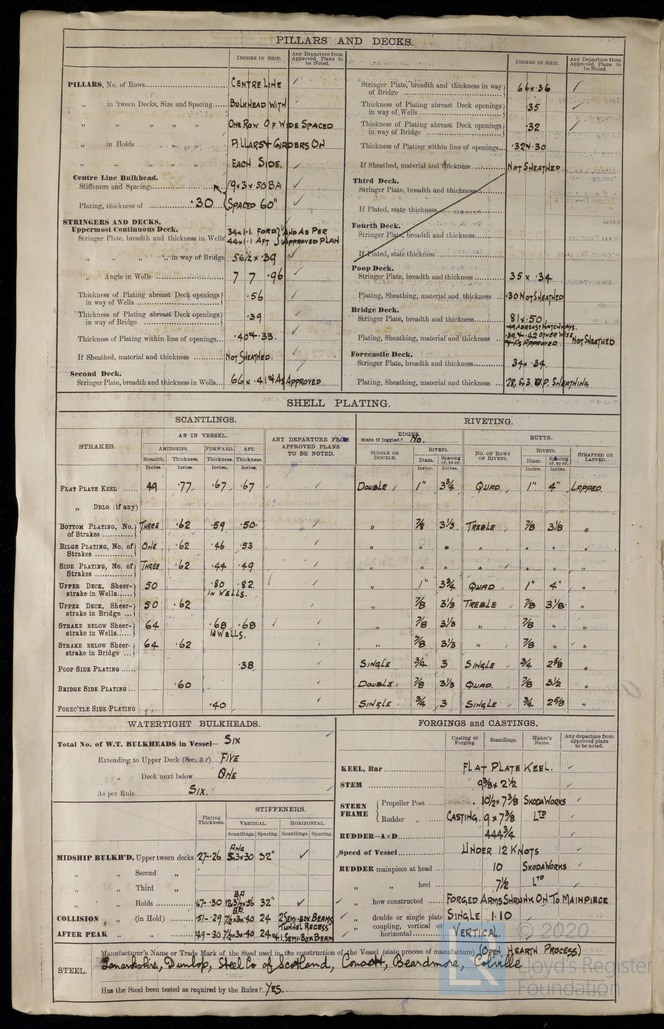 PILLARS AND DECKS.
INCHES IN SHIP.
Any Departure from Approved Plans to be Noted.
PILLARS, No. of Rows CENTRE LINE
" in 'tween Decks, Size and Spacing BULKHEAD WITH
" " " " ONE ROW OF WIDE SPACED
" in Holds " PILLARS & GIRDERS ON
" " " " EACH SIDE.
Centre Line Bulkhead.
Stiffeners and Spacing 9×3×50 BA
Plating, thickness of .30 SPACED 60"
STRINGERS AND DECKS.
Uppermost Continuous Deck.
Stringer Plate, breadth and thickness in Wells
AND AS PER
APPROVED PLAN
" " " " in way of Bridge 56½ × .39
" Angle in Wells 7 7 .96
Thickness of Plating abreast Deck openings in way of Wells .56
Thickness of Plating abreast Deck openings in way of Bridge .39
Thickness of Plating within line of openings
If Sheathed, material and thickness NOT SHEATHED.
Second Deck.
Stringer Plate, breadth and thickness in Wells 66 × .41 & AS APPROVED
INCHES IN SHIP.
Any Departure from Approved Plans to be Noted.
Stringer Plate, breadth and thickness in way of Bridge 66 × .36
Thickness of Plating abreast Deck openings in way of Wells .35
Thickness of Plating abreast Deck openings in way of Bridge .32
Thickness of Plating within line of openings .32 & .30
If Sheathed, material and thickness NOT SHEATHED
Third Deck.
Stringer Plate, breadth and thickness
If Plated, state thickness
Fourth Deck.
Stringer Plate, breadth and thickness
If Plated, state thickness
Poop Deck.
Stringer Plate, breadth and thickness 35 × .34
Plating, Sheathing, material and thickness .30 NOT SHEATHED
Bridge Deck.
Stringer Plate, breadth and thickness 81 × .50
Plating, Sheathing, material and thickness NOT SHEATHED
Forecastle Deck.
Stringer Plate, breadth and thickness 34 × .34
Plating, Sheathing, material and thickness SHEATHING
SHELL PLATING.
SCANTLINGS.
RIVETING.
STRAKES.
AS IN VESSEL.
AMIDSHIPS.
FORWARD.
AFT.
ANY DEPARTURE FROM APPROVED PLANS TO BE NOTED.
EDGES
State if Joggled? No.
BUTTS.
Breadth.
Thickness.
Thickness.
Thickness.
SINGLE OR DOUBLE.
RIVETS.
Diam.
Spacing cr. to cr.
NO. OF ROWS OF RIVETS.
RIVETS.
Diam.
Spacing cr. to cr.
STRAPPED OR LAPPED.
Inches.
FLAT PLATE KEEL 49 .77 .67 .67 DOUBLE 1" 3¾ QUAD. 1" 4" LAPPED
" DBLG. (if any)
BOTTOM PLATING, No. of Strakes THREE .62 .59 .50 " ⅞ 3⅓ TREBLE ⅞ 3⅛ "
BILGE PLATING, No. of Strakes ONE .62 .46 .53 " " " " " " "
SIDE PLATING, No. of Strakes THREE .62 .44 .49 " " " " " " "
UPPER DECK, Sheerstrake in Wells 50 .80 .82 IN WELLS. " 1" 3¾ QUAD 1" 4" "
UPPER DECK, Sheerstrake in Bridge 50 .62 " ⅞ 3⅓ TREBLE ⅞ 3⅛ "
STRAKE BELOW Sheerstrake in Wells 64 .68 .68 IN WELLS. " ⅞ 3⅓ " ⅞ " "
STRAKE BELOW Sheerstrake in Bridge 64 .62 " ⅞ 3⅓ " ⅞ " "
POOP SIDE PLATING .38 SINGLE ¾ 3 SINGLE ¾ 2⅝ "
BRIDGE SIDE PLATING .60 DOUBLE ⅞ 3⅓ QUAD. ⅞ 3½ "
FOREC'TLE SIDE PLATING .40 SINGLE ¾ 3 SINGLE ¾ 2⅝ "
WATERTIGHT BULKHEADS.
Total No. of W.T. BULKHEADS in Vessel— SIX
Extending to Upper Deck FIVE
" Deck next below ONE
As per Rule SIX.
Plating Thickness.
STIFFENERS.
VERTICAL.
HORIZONTAL.
Scantlings.
Spacing.
Scantlings.
Spacing.
MIDSHIP BULKH'D, Upper tween decks .27-.26 32"
" Second "
" Third "
" Holds .47-.30 32"
COLLISION " (in Hold) .51-.29 24 2 SEMI-BOX BEAMS
TUNNEL RECESS
AFTER PEAK " .49-.30 7½×3×40 24 & 1 SEMI BOX BEAM
FORGINGS and CASTINGS.
Casting or Forging.
Scantlings.
Maker's Name.
Any departure from approved plans to be noted.
KEEL, Bar FLAT PLATE KEEL.
STEM 9⅜ × 2½
STERN FRAME
Propeller Post 10½ × 7⅜ SKODA WORKS
Rudder " CASTING. 9 × 7⅜ LTD
RUDDER—A×D 444¾
Speed of Vessel UNDER 12 KNOTS
RUDDER mainpiece at head 10 SKODA WORKS
" " heel 7½ LTD
" how constructed FORGED ARMS SHRUNK ON TO MAINPIECE
" double or single plate SINGLE 1.10
" coupling, vertical or horizontal VERTICAL.
STEEL.
Manufacturer's Name or Trade Mark of the Steel used in the construction of the Vessel (state process of manufacture) (OPEN HEARTH PROCESS)
Lanarkshire, Dunlop, Steel Co of Scotland, Consett, Beardmore, Colville
Has the Steel been tested as required by the Rules? YES.
© 2020
Lloyd's Register
Foundation